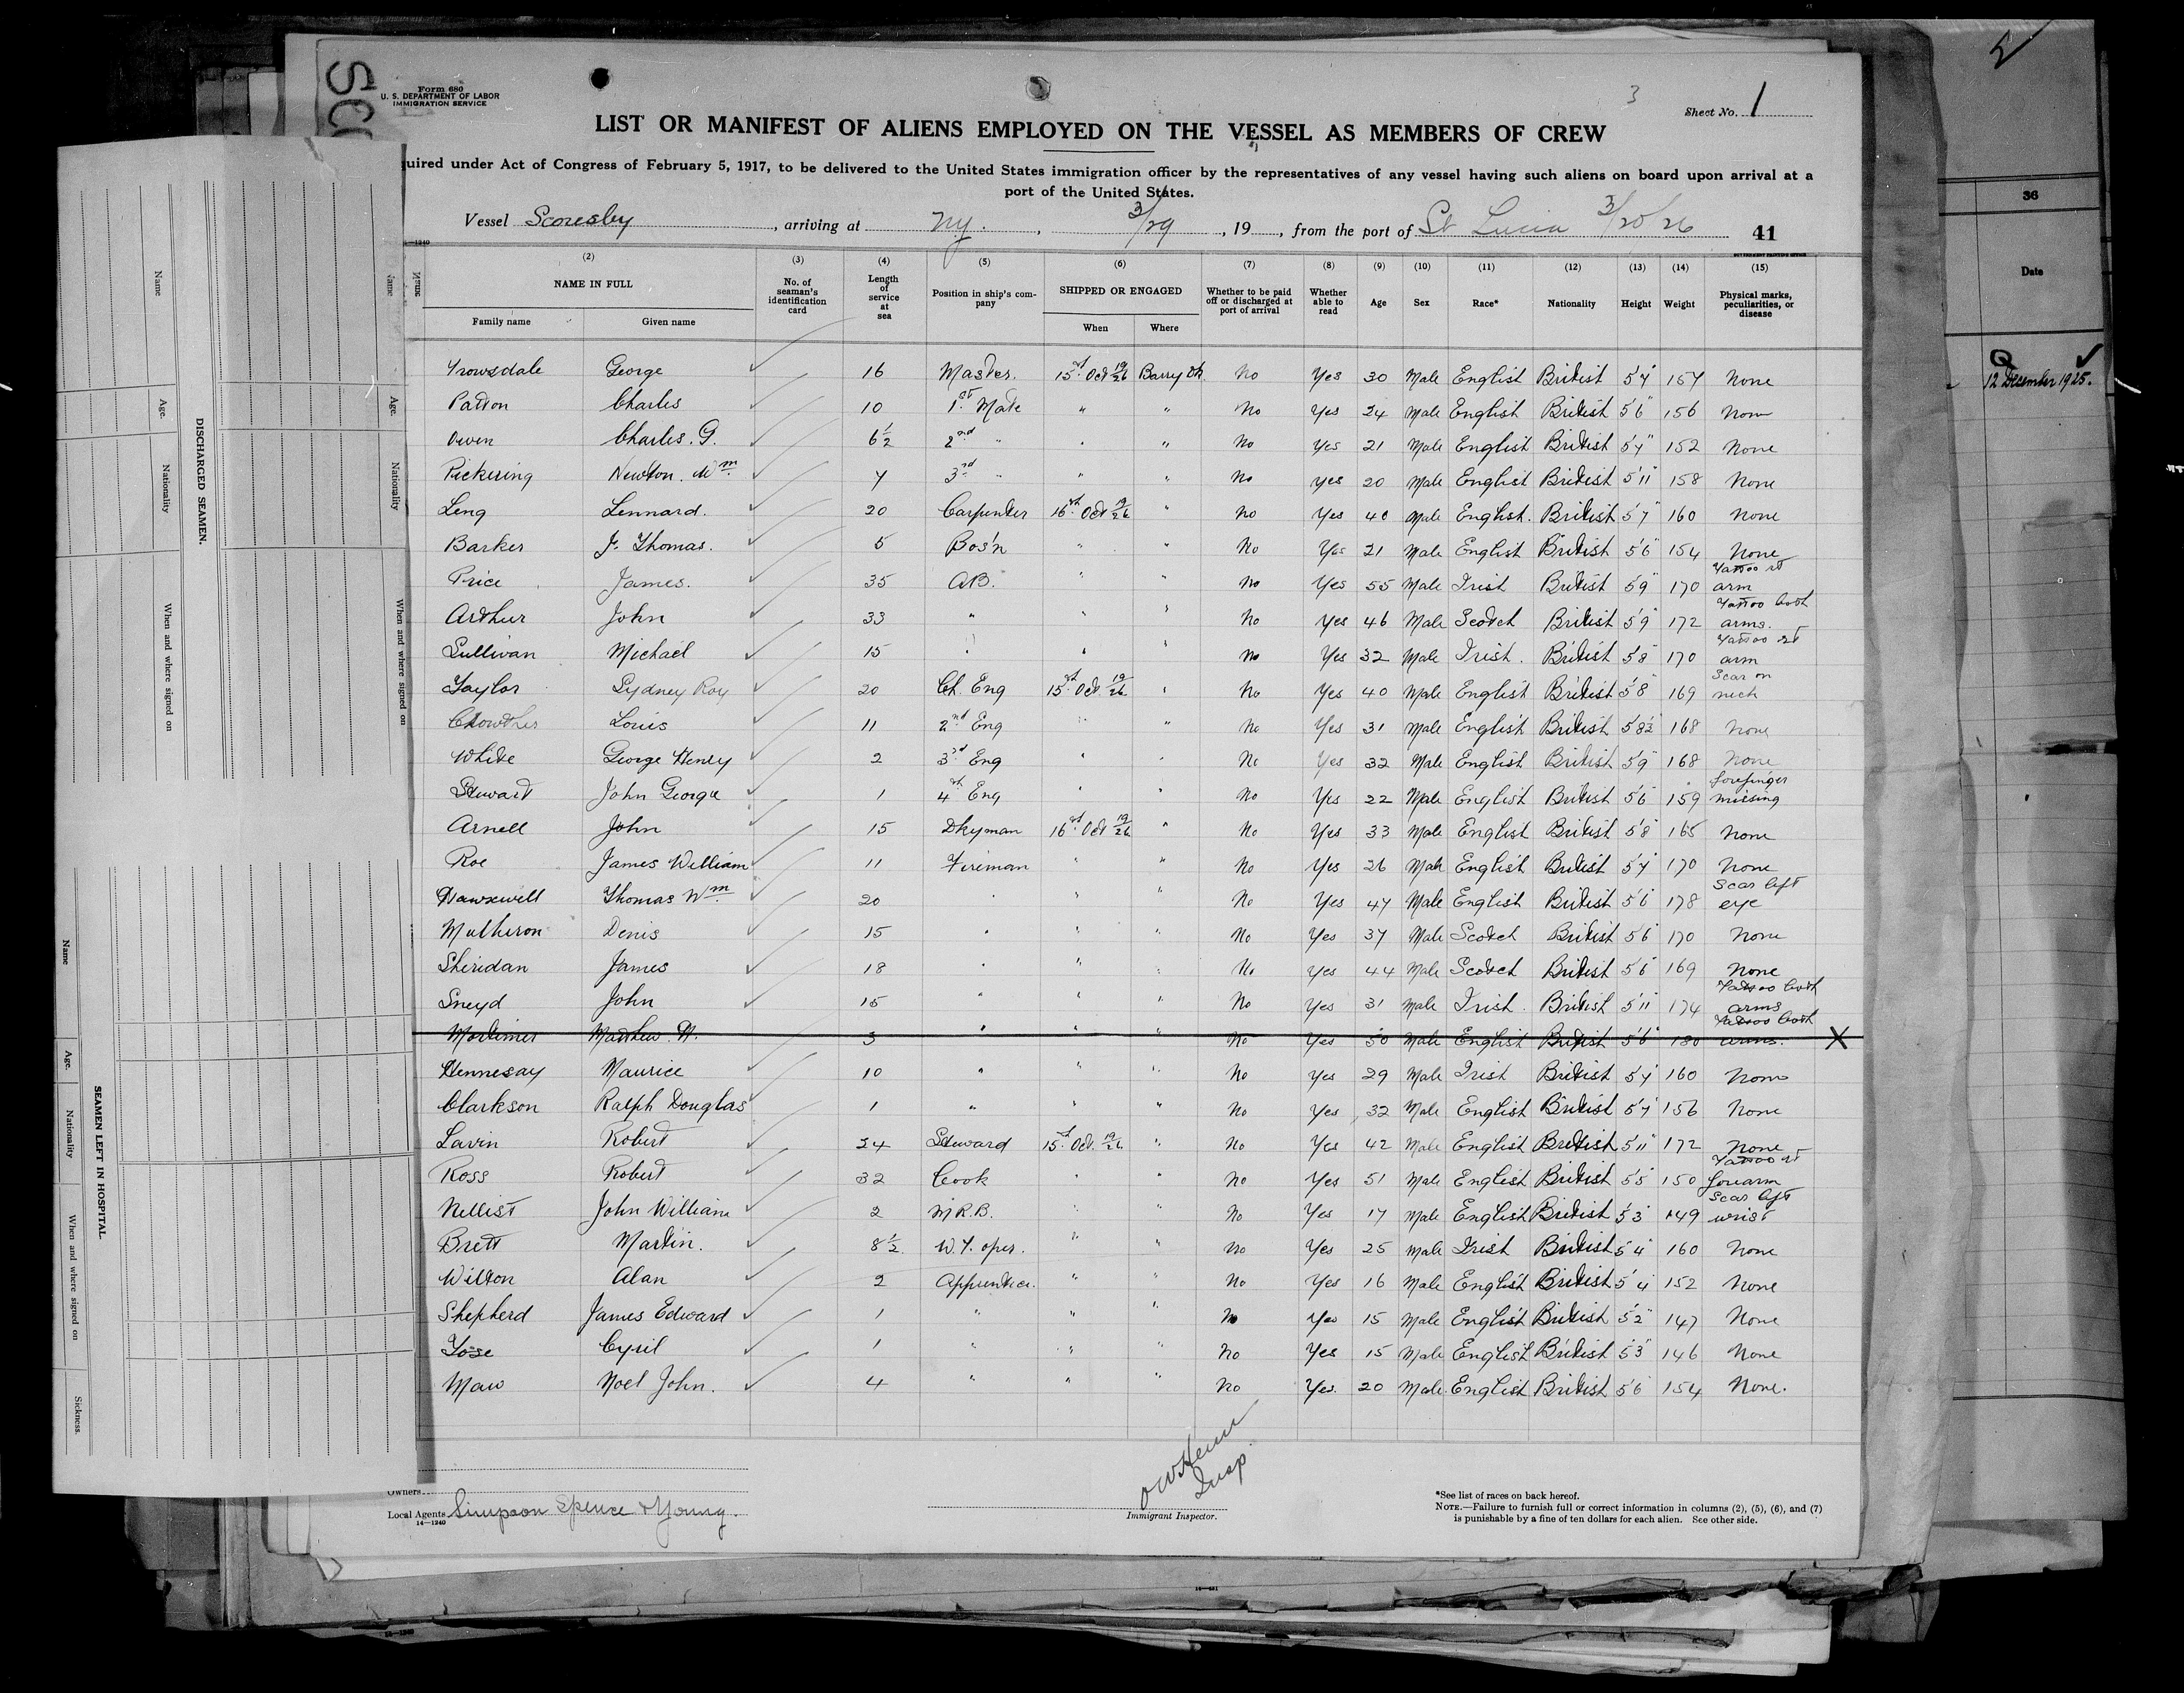 SCO
Form 680
U. S. DEPARTMENT OF LABOR
IMMIGRATION SERVICE
3
Sheet No. 1
LIST OR MANIFEST OF ALIENS EMPLOYED ON THE VESSEL AS MEMBERS OF CREW
uired under Act of Congress of February 5, 1917, to be delivered to the United States immigration officer by the representatives of any vessel having such aliens on board upon arrival at a
port of the United States.
Vessel Scoresby, arriving at Ny., 3/29, 19, from the port of St Lucia 3/20/26 41
(2) (3) (4) (5) (6) (7) (8) (9) (10) (11) (12) (13) (14) (15)
NAME IN FULL No. of seaman's identification card Length of service at sea Position in ship's company SHIPPED OR ENGAGED Whether to be paid off or discharged at port of arrival Whether able to read Age Sex Race* Nationality Height Weight Physical marks, peculiarities, or disease
Family name Given name When Where
Trowsdale George 16 Master. 15th Oct 19/26 Barry Dk. No Yes 30 Male English British 5'7" 157 None
Patton Charles 10 1st Mate " " No Yes 24 Male English British 5'6" 156 None
Owen Charles. G. 6½ 2nd " " " No Yes 21 Male English British 5'7" 152 None
Pickering Newton. Wm. 7 3rd " " " No Yes 20 Male English British 5'11" 158 None
Leng Lennard. 20 Carpenter 16th Oct 19/26 " No Yes 40 Male English. British 5'7" 160 None
Barker J. Thomas. 5 Bos'n " " No Yes 21 Male English British 5'6" 154 None
Price James. 35 AB. " " No Yes 55 Male Irish British 5'9" 170 Tattoo rt arm
Arthur John 33 " " " No Yes 46 Male Scotch British 5'9" 172 Tattoo both arms.
Sullivan Michael 15 " " " No Yes 32 Male Irish. British 5'8" 170 Tattoo rt arm
Taylor Sydney Roy 20 Ch. Eng 15th Oct. 19/26 " No Yes 40 Male English British 5'8" 169 Scar on neck
Crowther Louis 11 2nd Eng " " No Yes 31 Male English British 5'8½" 168 None
White George Henry 2 3rd Eng " " No Yes 32 Male English British 5'9" 168 None
Stewart John George 1 4th Eng " " No Yes 22 Male English British 5'6" 159 forefinger missing
Arnell John 15 Dkyman 16th Oct 19/26 " No Yes 33 Male English British 5'8" 165 None
Roe James William 11 Fireman " " No Yes 26 Male English British 5'7" 170 None
Hawxwell Thomas Wm. 20 " " " No Yes 47 Male English British 5'6" 178 Scar left eye
Mulheron Denis 15 " " " No Yes 37 Male Scotch British 5'6" 170 None
Sheridan James 18 " " " No Yes 44 Male Scotch British 5'6" 169 None
Sneyd John 15 " " " No Yes 31 Male Irish. British 5'11" 174 Tattoo both arms
Mortimer Matthew. H. 3 " " " No Yes 30 Male English British 5'6" 180 Tattoo both arms. X
Hennesay Maurice 10 " " " No Yes 29 Male Irish British 5'7" 160 None
Clarkson Ralph Douglas 1 " " " No Yes 32 Male English British 5'7" 156 None
Lavin Robert 24 Steward 15th Oct. 19/26 " No Yes 42 Male English British 5'11" 172 None
Ross Robert 32 Cook " " No Yes 51 Male English British 5'5" 150 Tattoo rt forearm
Nellist John William 2 M.R.B. " " No Yes 17 Male English British 5'3" 149 Scar left wrist
Brett Martin. 8½ W.T. oper. " " No Yes 25 Male Irish British 5'4" 160 None
Wilton Alan 2 Apprentice. " " No Yes 16 Male English British 5'4" 152 None
Shepherd James Edward 1 " " " No Yes 15 Male English British 5'2" 147 None
Yose Cyril 1 " " " No Yes 15 Male English British 5'3" 146 None
Maw Noel John. 4 " " " No Yes. 20 Male English British 5'6" 154 None.
Owners
Local Agents Simpson Spence & Young.
14—1240
Insp
Immigrant Inspector.
*See list of races on back hereof.
NOTE.—Failure to furnish full or correct information in columns (2), (5), (6), and (7)
is punishable by a fine of ten dollars for each alien. See other side.
DISCHARGED SEAMEN.
Name Age. Nationality When and where signed on
Name Age. Nationality When and where signed on
SEAMEN LEFT IN HOSPITAL
Name Age. Nationality When and where signed on Sickness.
5
36
Date
Q ✓
12 December 1925.